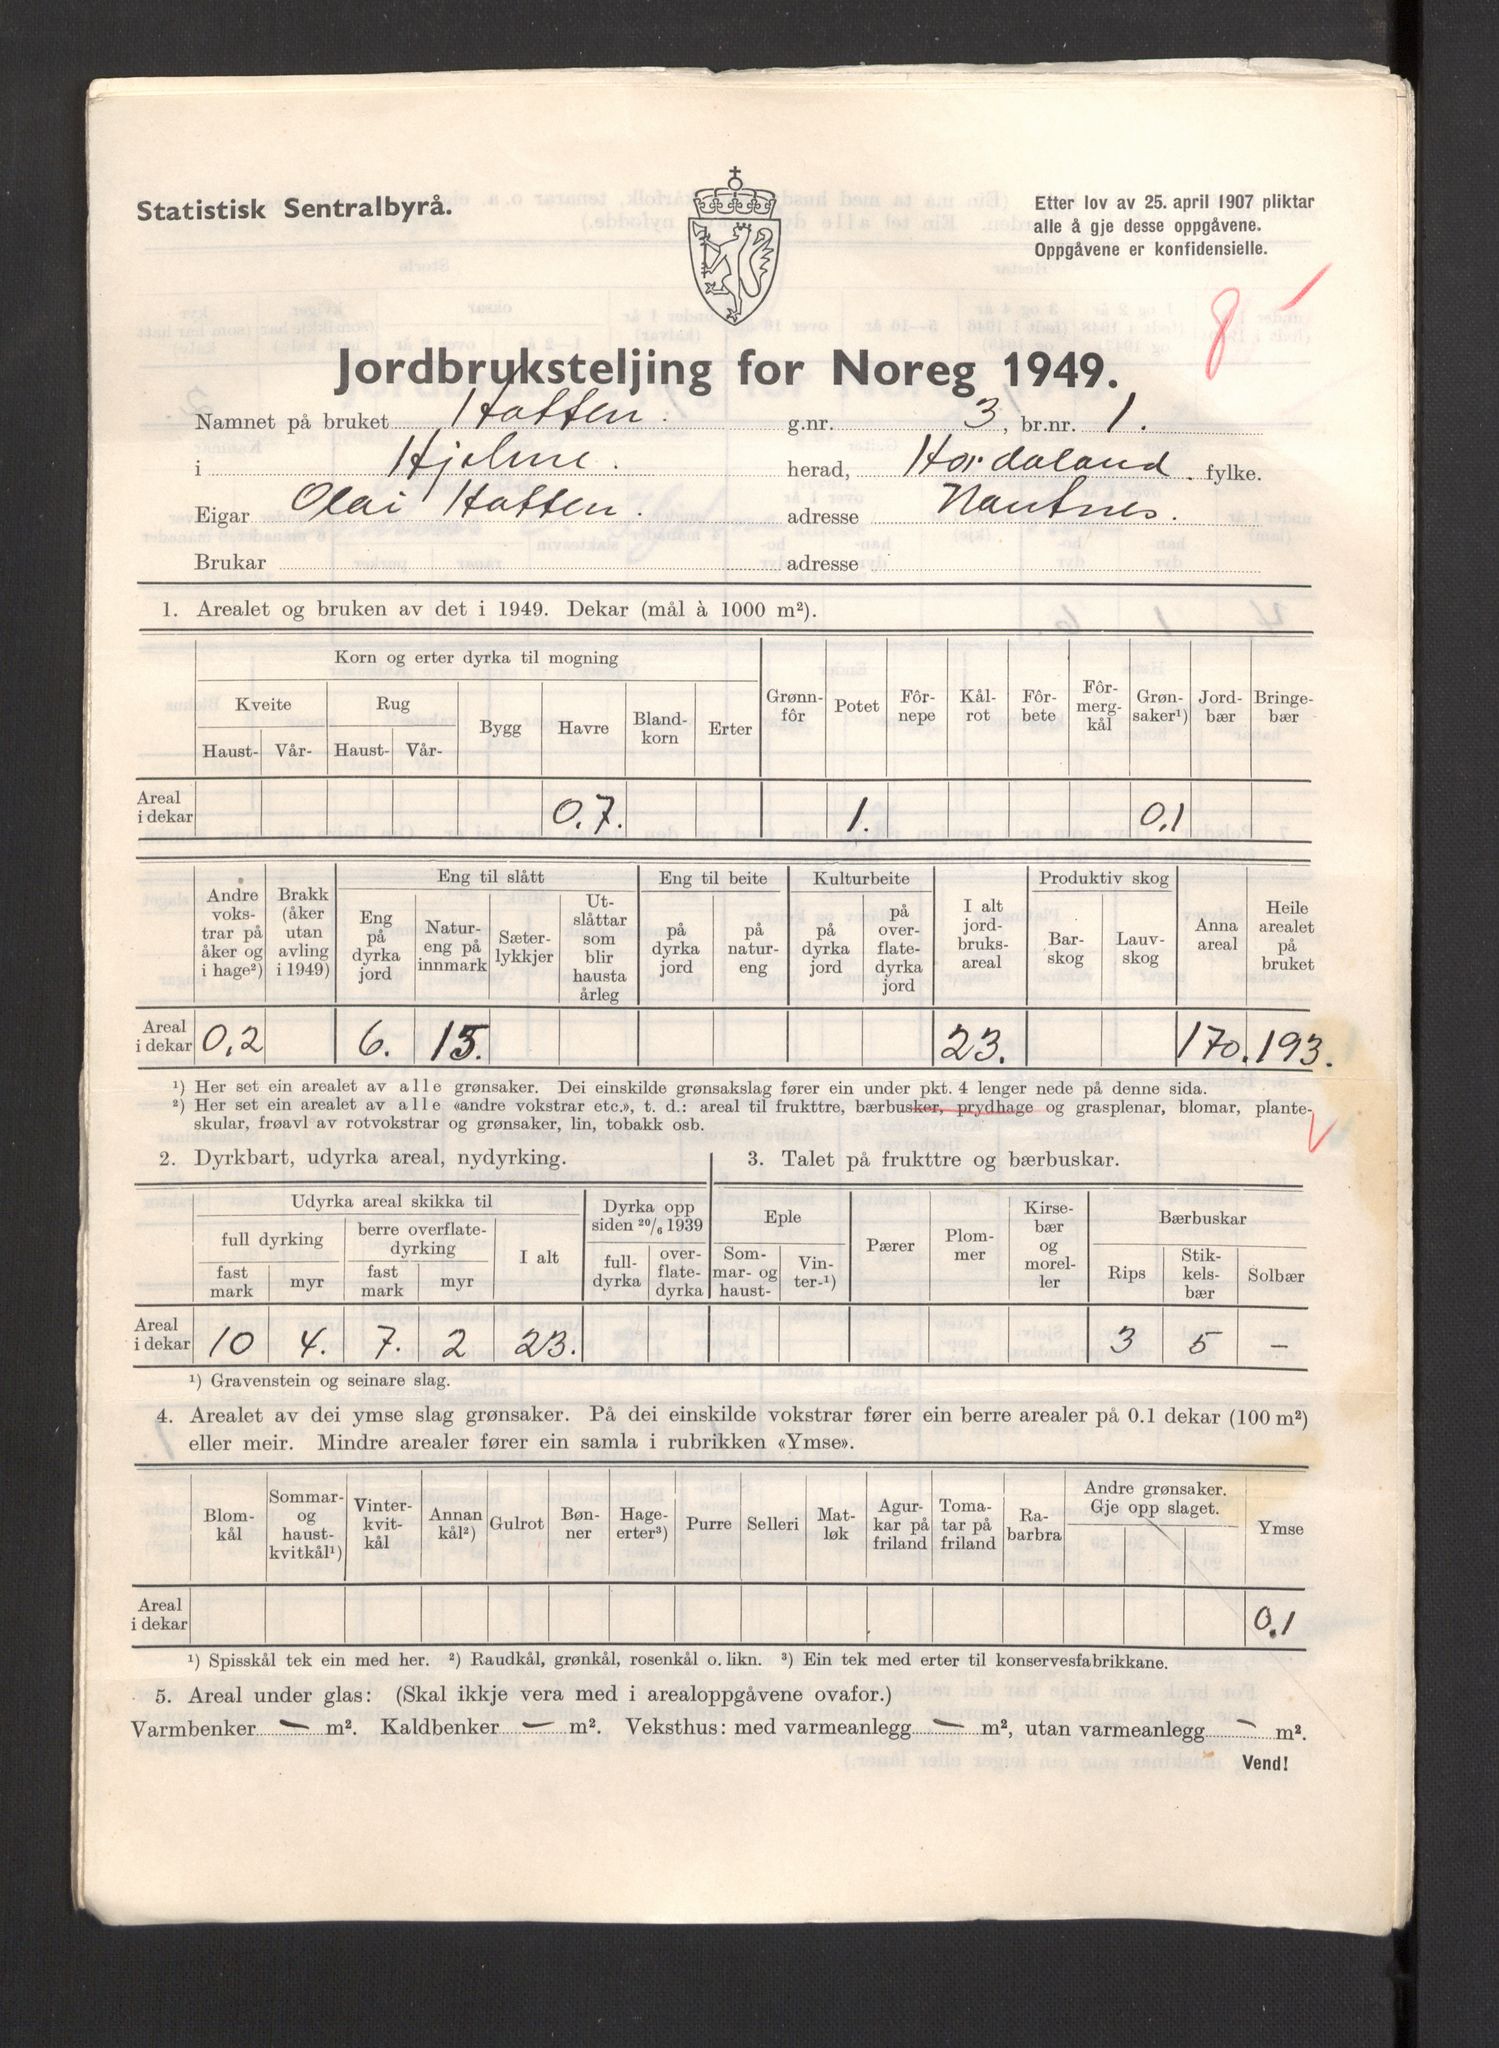 Statistisk Sentralbyrå.
Etter lov av 25. april 1907 pliktar
alle å gje desse oppgåvene.
Oppgåvene er konfidensielle.
8
Jordbruksteljing for Noreg 1949.
Namnet på bruket Hatten. g.nr. 3, br.nr. 1.
i Hjelme. herad, Hordaland. fylke.
Eigar Olai Hatten. adresse Nautnes.
Brukar adresse
1. Arealet og bruken av det i 1949. Dekar (mål à 1000 m²).
Korn og erter dyrka til mogning
Kveite Rug Bygg Havre Bland-korn Erter Grønn-fôr Potet Fôr-nepe Kål-rot Fôr-bete Fôr-mergkål Grøn-saker¹) Jord-bær Bringe-bær
Haust- Vår- Haust- Vår-
Areal i dekar 0.7. 1. 0.1
Andre voks-trar på åker og i hage²) Brakk (åker utan avling i 1949) Eng til slått Eng til beite Kulturbeite I alt jord-bruks-areal Produktiv skog Anna areal Heile arealet på bruket
Eng på dyrka jord Natur-eng på innmark Sæter-lykkjer Ut-slåttar som blir hausta årleg på dyrka jord på natur-eng på dyrka jord på over-flate-dyrka jord Bar-skog Lauv-skog
Areal i dekar 0.2 6. 15. 23. 170. 193.
¹) Her set ein arealet av alle grønsaker. Dei einskilde grønsakslag fører ein under pkt. 4 lenger nede på denne sida.
²) Her set ein arealet av alle «andre vokstrar etc.», t. d.: areal til frukttre, bærbusker, prydhage og grasplenar, blomar, plante-
skular, frøavl av rotvokstrar og grønsaker, lin, tobakk osb.
2. Dyrkbart, udyrka areal, nydyrking.
3. Talet på frukttre og bærbuskar.
Udyrka areal skikka til Dyrka opp siden 20/6 1939 Eple Pærer Plom-mer Kirse-bær og morel-ler Bærbuskar
full dyrking berre overflate-dyrking I alt full-dyrka over-flate-dyrka Som-mar- og haust- Vin-ter-¹) Rips Stik-kels-bær Solbær
fast mark myr fast mark myr
Areal i dekar 10 4. 7. 2 23. 3 5 –
¹) Gravenstein og seinare slag.
4. Arealet av dei ymse slag grønsaker. På dei einskilde vokstrar fører ein berre arealer på 0.1 dekar (100 m²)
eller meir. Mindre arealer fører ein samla i rubrikken «Ymse».
Blom-kål Sommar- og haust-kvitkål¹) Vinter-kvit-kål Annan kål²) Gulrot Bøn-ner Hage-erter³) Purre Selleri Mat-løk Agur-kar på friland Toma-tar på friland Ra-barbra Andre grønsaker. Gje opp slaget. Ymse
Areal i dekar 0.1
¹) Spisskål tek ein med her. ²) Raudkål, grønkål, rosenkål o. likn. ³) Ein tek med erter til konservesfabrikkane.
5. Areal under glas: (Skal ikkje vera med i arealoppgåvene ovafor.)
Varmbenker – m². Kaldbenker – m². Veksthus: med varmeanlegg – m², utan varmeanlegg – m².
Vend!